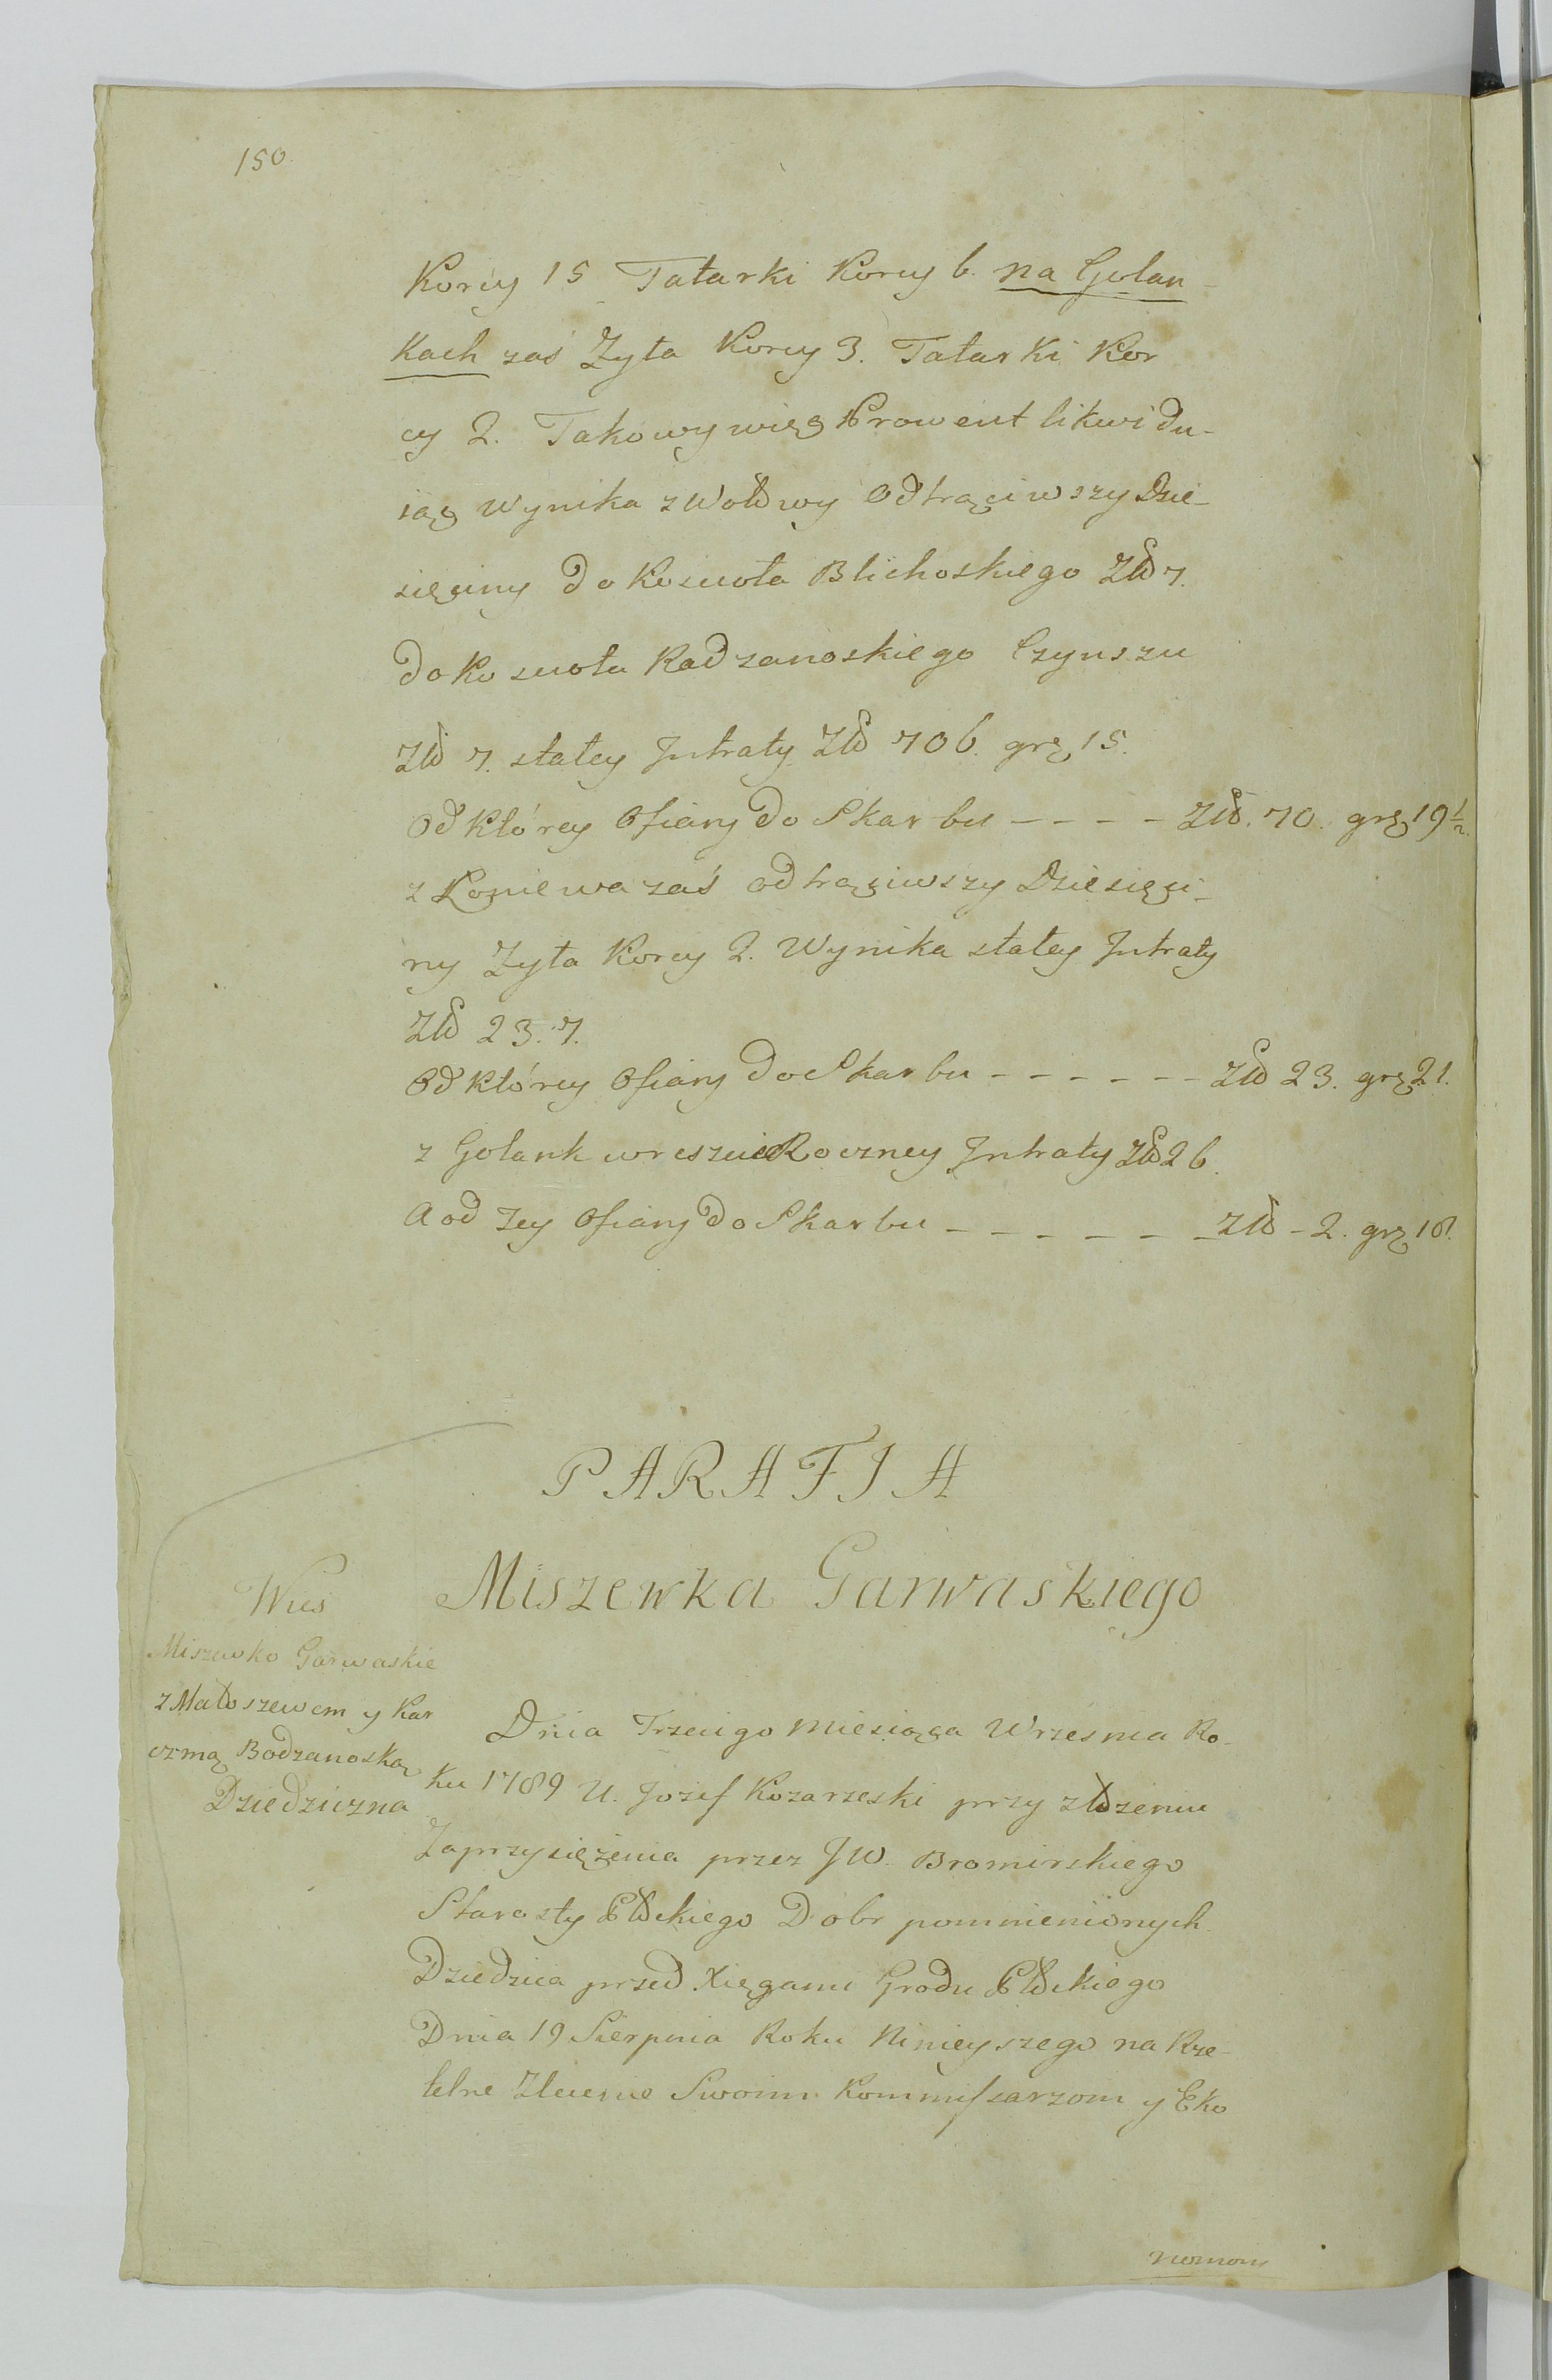 150.
Korcy 15 Tatarki Korcy 6. na Golan-
kach zaś Zyta Korcy 3. Tatarki Kor
cy 2. Takowy więc Prowent likwidu-
iąc wynika z Wołowy Odtrąciwszy Dzie-
sięciny do Koscioła Blichoskiego Złł 7.
do Koscioła Radzanoskiego Czynszu
Złł 7. stałey Jntraty Złł 706. grz 15.
Od którey Ofiary do Skarbu - - - - Złł. 70. grz 19 1/2.
z Łoniewa zaś odtrąciwszy Dziesięci-
ny Zyta Korcy 2. Wynika stałey Jntraty
Złł 237.
Od którey Ofiary do Skarbu - - - - - - Złł 23. grz 21.
z Golank wreszcie Roczney Jntraty Złł 26.
A od Jey Ofiary do Skarbu - - - - - - Złł - 2. grz 18.
PARAFIA
Miszewka Garwaskiego
Wieś
Miszewko Garwaskie
z Małoszewem y Kar
czmą Bodzanoską
Dziedziczna
Dnia Trzecigo Miesiąca Wrzesnia Ro-
ku 1789 U. Jozef Kozarzeski przy złożeniu
Zaprzysiężenia przez JW. Bromirskiego
Starosty Płłckiego Dobr pomnienionych
Dziedzica przed Xięgami Grodu Płłckiego
Dnia 19 Sierpnia Roku Ninieyszego na Rze-
telne Zlecenie Swoim Kommissarzom y Eko